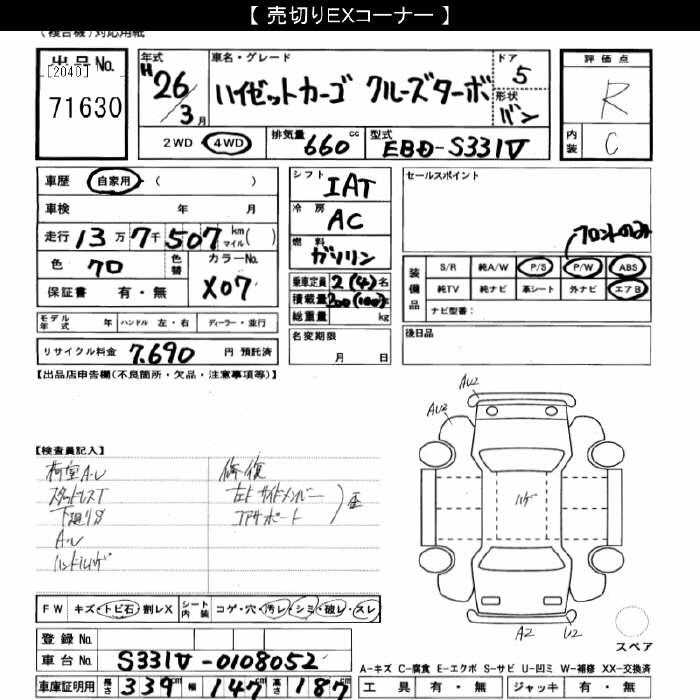 【 売切りEXコーナー 】
(複合機)対応用紙
出品No.
[2040]
71630
年式
H26/3月
車名・グレード
ハイゼットカーゴ クルーズターボ
ドア
5
形状
バン
評価点
R
内装
C
2WD 4WD
排気量
660cc
型式
EBD-S331V
車歴 自家用 ( )
車検 年 月
走行 13万7千507km マイル( )
色 クロ
色替
カラーNo.
X07
保証書 有・無
シフト
IAT
冷房
AC
燃料
ガソリン
乗車定員 2(4)名
積載量 200(100)kg
総重量 kg
名変期限
月 日
セールスポイント
フロントのみ
装備品
S/R 純A/W P/S P/W ABS
純TV 純ナビ 革シート 外ナビ エアB
ナビ型番:
後日品
モデル年式 年 ハンドル 左・右 ディーラー・並行
リサイクル料金 7,690 円 預託済
【出品店申告欄(不良箇所・欠品・注意事項等)】
【検査員記入】
荷室A・U
スタッドレスT
下廻りS
A・U
ハンドルハゲ
修復
左右サイドメンバー
コアサポート
歪
AU2
AU2
ハゲ
A2
U2
スペア
FW キズ・トビ石・割レX
シート内装 コゲ・穴・汚レ・シミ・破レ・スレ
登録No.
車台No. S331V-0108052
車庫証明用 長さ 339cm 幅 147cm 高さ 187cm
A-キズ C-腐食 E-エクボ S-サビ U-凹ミ W-補修 XX-交換済
工具 有・無 ジャッキ 有・無